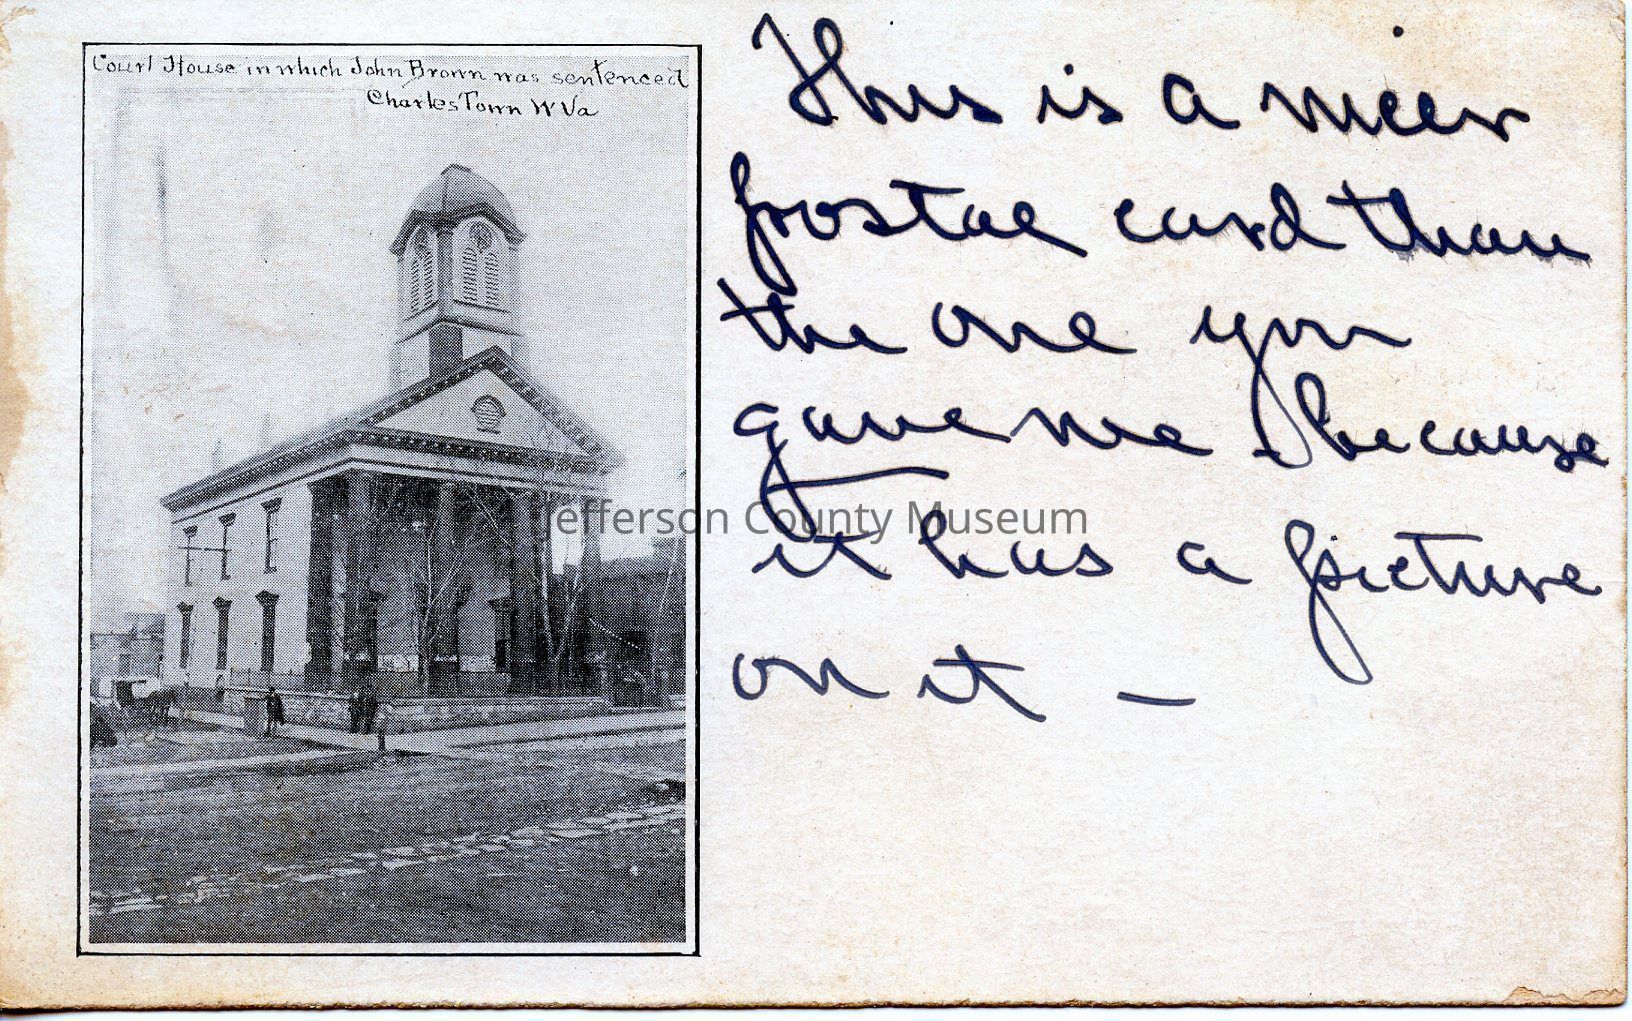 Court House in which John Brown was sentenced
Charles Town W Va
This is a nicer
postal card than
the one you
gave me, because
it has a picture
on it —
Jefferson County Museum